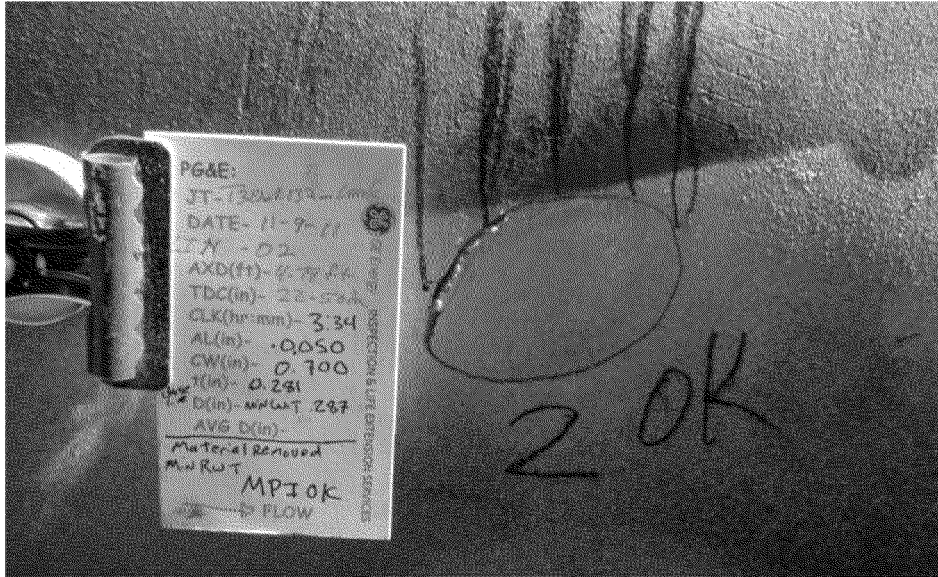 PG&E:
JT-
DATE- 11-9-11
IN - 02
AXD(ft)-
TDC(in)-
CLK(hr:mm)- 3:34
AL(in)- .0,050
CW(in)- 0.700
T(in)- 0.281
D(in)- MNRWT .287
AVG D(in)-
Material Removed
MNRWT
MPI OK
FLOW
INSPECTION & LIFE EXTENSION SERVICES
2 OK